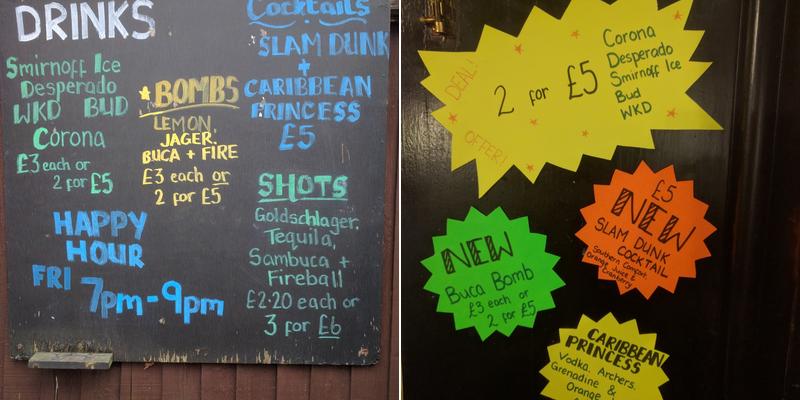 DRINKS
Smirnoff Ice
Desperado
WKD BUD
Corona
£3 each or
2 for £5
BOMBS
LEMON,
JAGER,
BUCA + FIRE
£3 each or
2 for £5
Cocktails
SLAM DUNK
+
CARIBBEAN
PRINCESS
£5
SHOTS
Goldschlager,
Tequila,
Sambuca +
Fireball
£2·20 each or
3 for £6
HAPPY
HOUR
FRI 7pm-9pm
DEAL!
2 for £5
Corona
Desperado
Smirnoff Ice
Bud
WKD
OFFER!
£5
NEW
SLAM DUNK
COCKTAIL
Southern Comfort,
Orange Juice &
Cranberry
NEW
Buca Bomb
£3 each or
2 for £5
CARIBBEAN
PRINCESS
Vodka, Archers,
Grenadine &
Orange